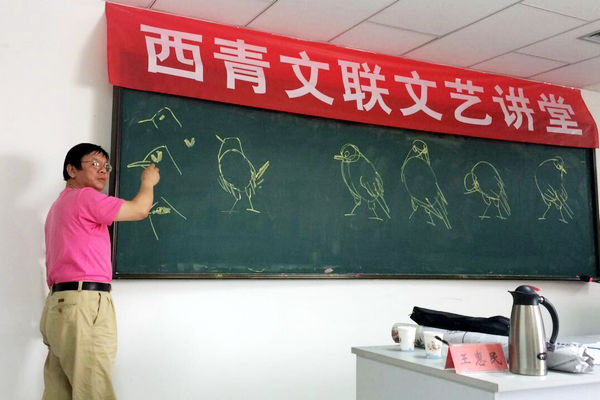 西青文联文艺讲堂
王惠民